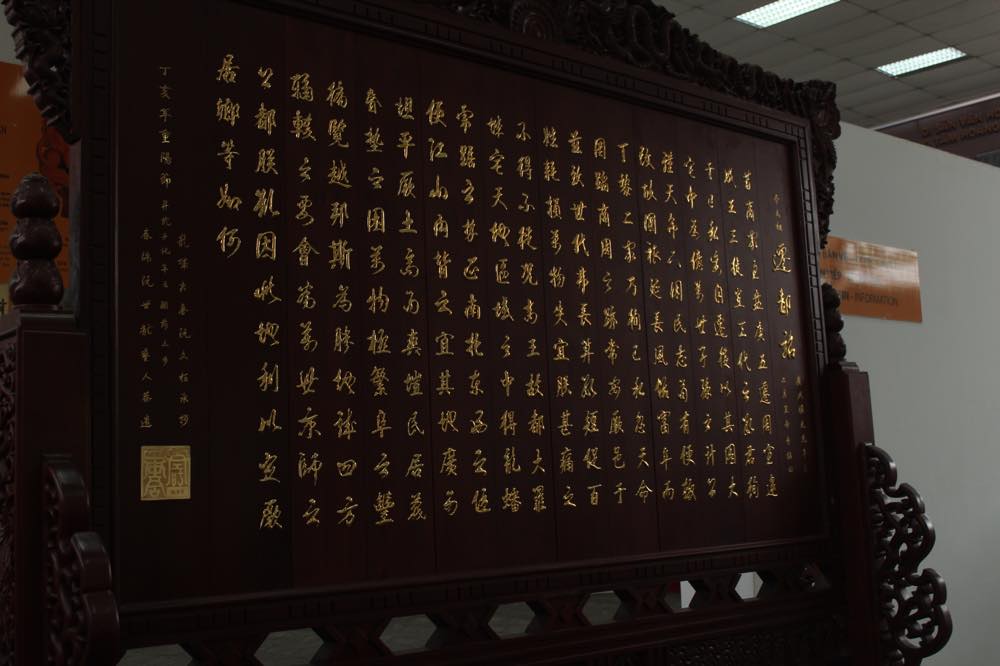 李太祖 遷都詔
昔商家至盤庚五遷周室迨
成王三徙豈三代之數君徇
于己私妄自遷徙以其圖大
宅中為億萬世子孫之計上
謹天命下因民志苟有便輒
改故國祚延長風俗富阜而
丁黎二家乃徇己私忽天命
罔蹈商周之跡常安厥邑于
茲致世代弗長算數短促百
姓耗損萬物失宜朕甚痛之
不得不徙況高王故都大羅
城宅天地區域之中得龍蟠
虎踞之勢正南北東西之位
便江山向背之宜其地廣而
坦平厥土高而爽塏民居蔑
昏墊之困萬物極繁阜之豐
遍覽越邦斯為勝地誠四方
輻輳之要會為萬世京師之
上都朕欲因此地利以定厥
居卿等如何
丁亥年重陽節
INFORMATION